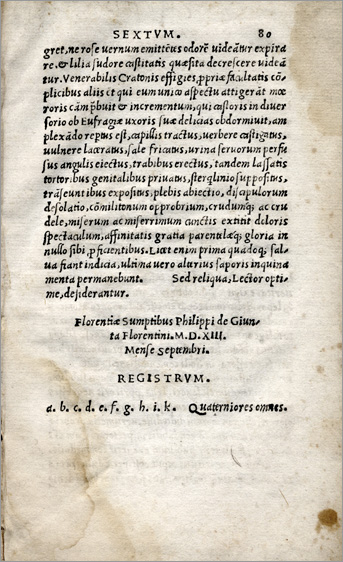 SEXTVM. 80
gret, ne rose uernum emittẽus odorẽ uideãtur expira
re, & lilia sudore castitatis quæsita decrescere uideã
tur. Venerabilis Cratonis effigies, ppriæ facultatis cõ
plicibus aliis et qui eum unico aspectu attigerãt mœ
roris cãm p̃buit & incrementum, qui castoris in diuer
sorio ob Eufragiæ uxoris suæ delicias obdormiuit, am
plexãdo reptus est, capillis tractus, uerbere castigatus,
uulnere laceratus, sale fricatus, urina seruorum perfu
sus angulis eiectus, trabibus erectus, tandem lassatis
tortoribus genitalibus priuatus, sterqlinio suppositus,
trãseuntibus expositus, plebis abiectio, discipulorum
desolatio, cõmilitonum opprobrium, crudumq; ac cru
dele, miserum ac miserrimum cunctis extitit doloris
spectaculum, affinitatis gratia parentelæq; gloria in
nullo sibi, pficientibus. Licet enim prima quadoq; sal
ua fiant indicia, ultima uero alterius saporis inquina
menta permanebunt. Sed reliqua, Lector opti
me, desiderantur.
Florentiæ Sumptibus Philippi de Giun
ta Florentini. M.D.XIII.
Mense Septembri.
REGISTRVM.
a. b. c. d. e. f. g. h. i. k. Quaterniores omnes.